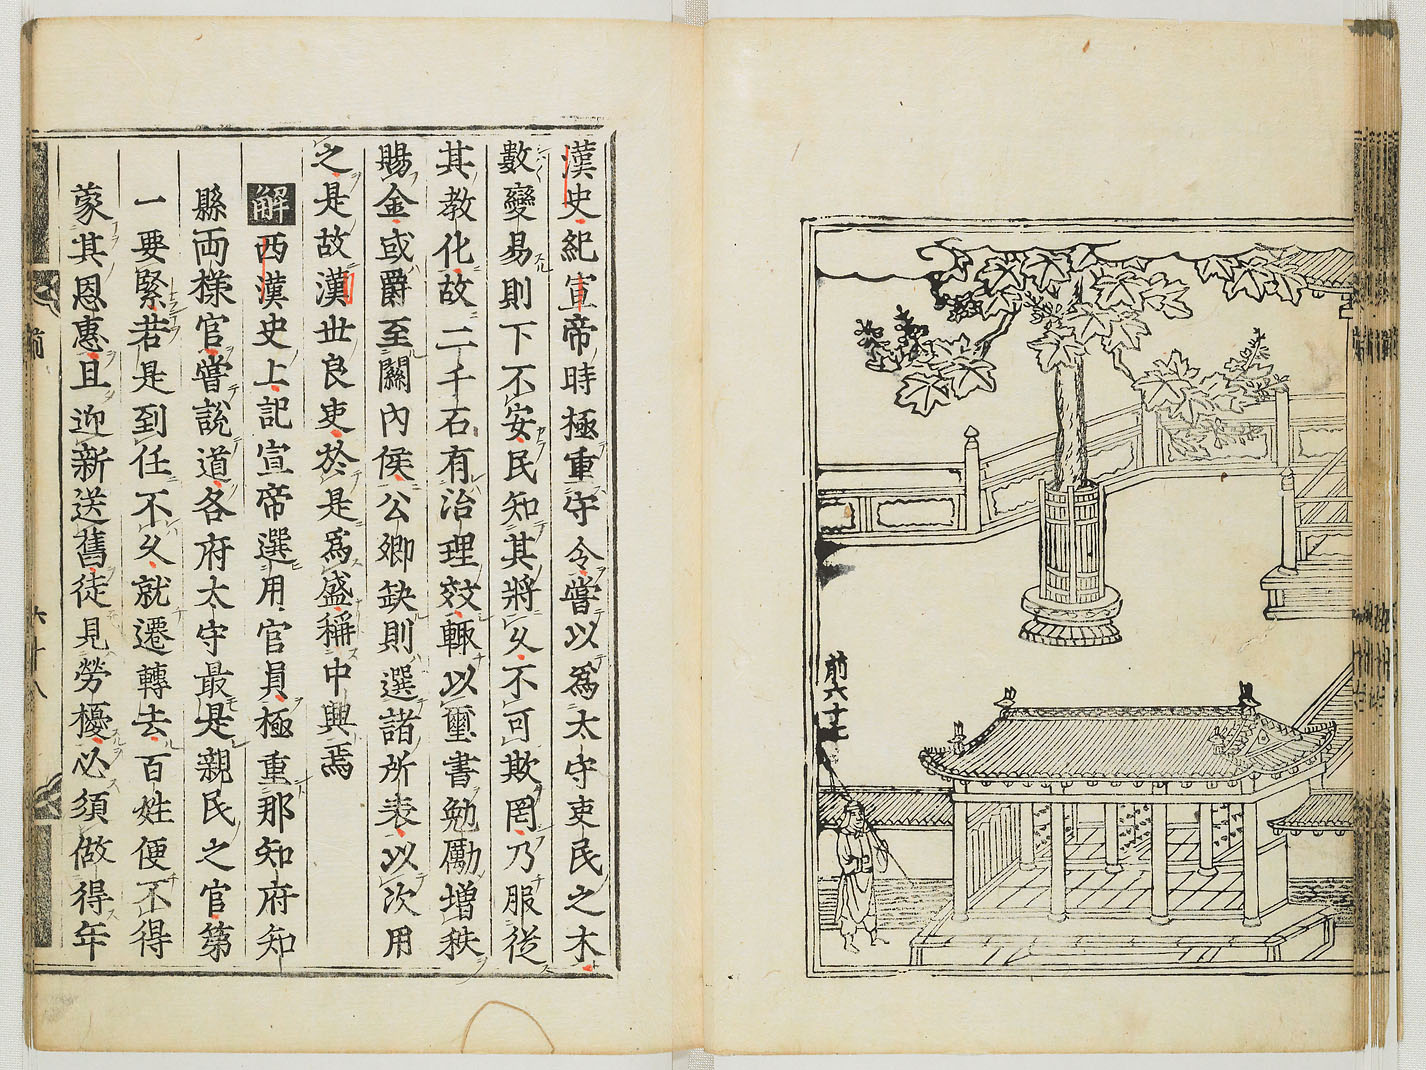 前六十七
漢史紀宣帝時極重守令嘗以爲太守吏民之本
數變易則下不安民知其將久不可欺罔乃服從
其教化故二千石有治理效輒以璽書勉勵增秩
賜金或爵至關內侯公卿缺則選諸所表以次用
之是故漢世良吏於是爲盛稱中興焉
解西漢史上記宣帝選用官員極重那知府知
縣両樣官嘗說道各府太守最是親民之官第
一要緊若是到任不久就遷轉去百姓便不得
蒙其恩惠且迎新送舊徒見勞擾必須做得年
前 六十八